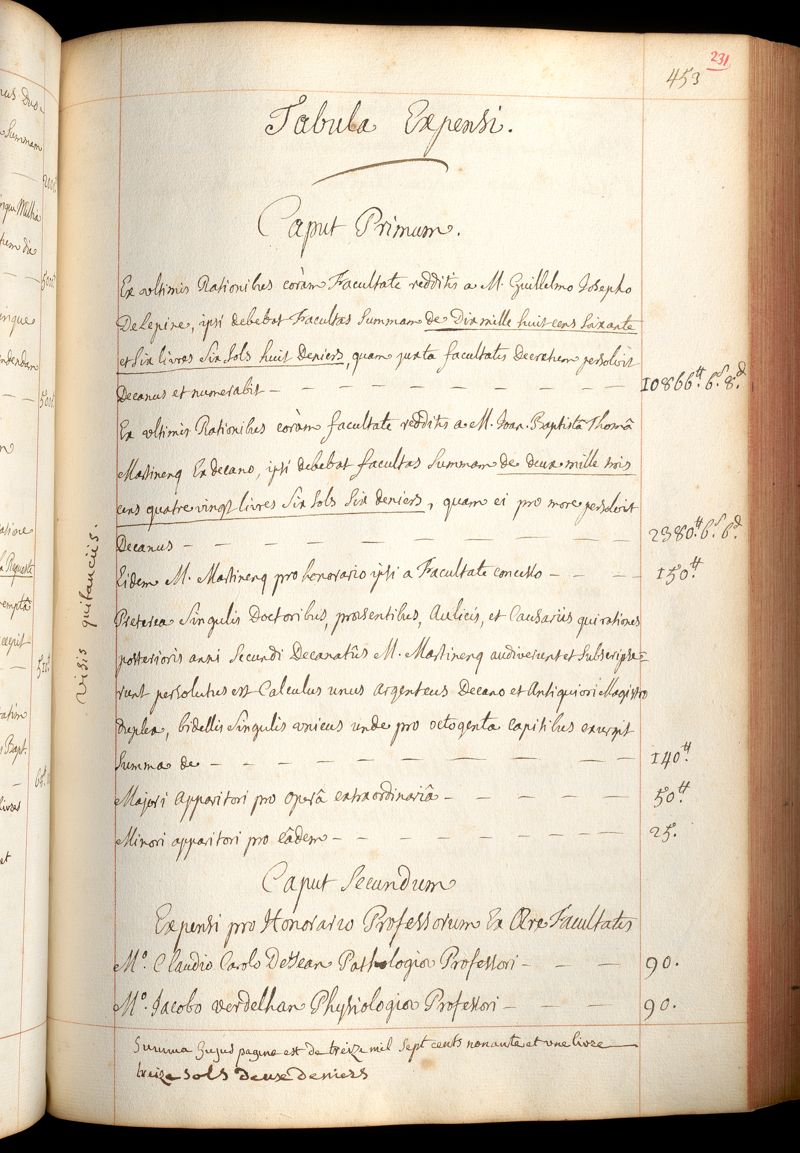 231
453
Tabula Expensi.
Caput Primum.
Ex ultimis Rationibus coràm Facultate redditis a M. Guillelmo Josepho
De Lepine, ipsi debebat Facultas Summam de Dix mille huit cens Soixante
et Six livres Six Sols huit Deniers, quam juxta facultatis Decretum persolvit
Decanus et numerabit - 10866.tt 6.s 8.d
Ex ultimis Rationibus coràm facultate redditis a M. Joan. Baptistâ Thomâ
Martinenq Exdecano, ipsi debebat facultas Summam de deux mille trois
cens quatre vingt livres Six Sols Six deniers, quam ei pro more persolvit
Decanus - 2380.tt 6.s 6.d
Eidem M. Martinenq pro honorario ipsi a Facultate concesso - 150.tt
Preterea Singulis Doctoribus, præsentibus, Aulicis, et Causariis qui rationes
posterioris anni Secundi Decanatûs M. Martinenq audiverunt et Subscripse=
runt persolutus est Calculus unus argenteus Decano et Antiquiori Magistro
duplex, bidellis Singulis unicus unde pro octogenta capitibus exurgit
Summa de - 140.tt
Majori Apparitori pro operâ extraordinariâ - 50.tt
Minori apparitori pro eâdem - 25.
Visis quitanciis.
Caput Secundum
Expensi pro Honorario Professorum Ex Ære Facultatis
M.o Claudio Carolo DeJean Pathologiæ Professori - 90.
M.o Jacobo verdelhan Physiologiæ Professori - 90.
Summa hujus pagine est de treize mil Sept cents nonante et une livre
treize sols deux deniers